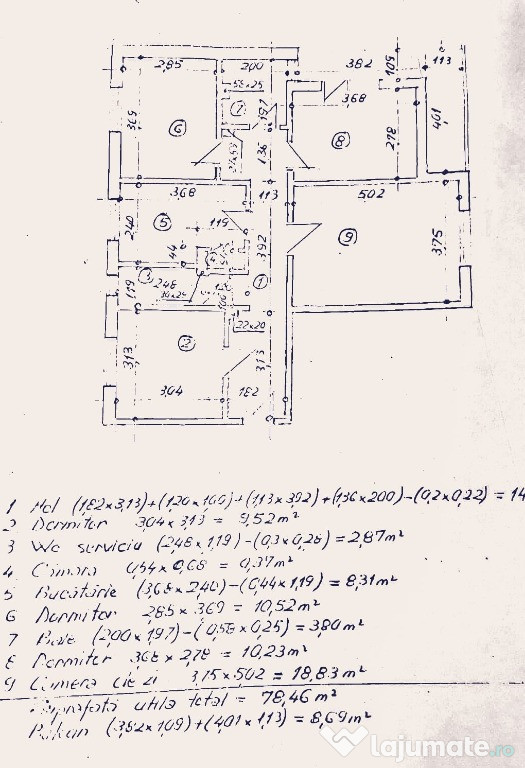 285
200
382
109
113
58x25
7
197
368
369
6
136
8
278
401
368
113
502
5
119
240
44
4
392
9
375
3
248
119
30x28
1
2
22x20
313
313
304
182
1 Hol (1,82 x 3,13)+(1,20 x 1,00)+(1,13 x 3,92)+(1,36 x 200)-(0,2 x 0,22) = 14
2 Dormitor 3,04 x 3,13 = 9,52 m²
3 Wc serviciu (2,48 x 1,19)-(0,3 x 0,28) = 2,87 m²
4 Cămara 0,54 x 0,68 = 0,37 m²
5 Bucătărie (3,68 x 2,40)-(0,44 x 1,19) = 8,31 m²
6 Dormitor 2,85 x 369 = 10,52 m²
7 Baie (2,00 x 1,97)-(0,58 x 0,25) = 3,80 m²
8 Dormitor 368 x 2,78 = 10,23 m²
9 Camera de zi 3,75 x 502 = 18,83 m²
Suprafață utila total = 78,46 m²
Balcon (3,82 x 1,09)+(4,01 x 1,13) = 8,69 m²
lajumate.ro